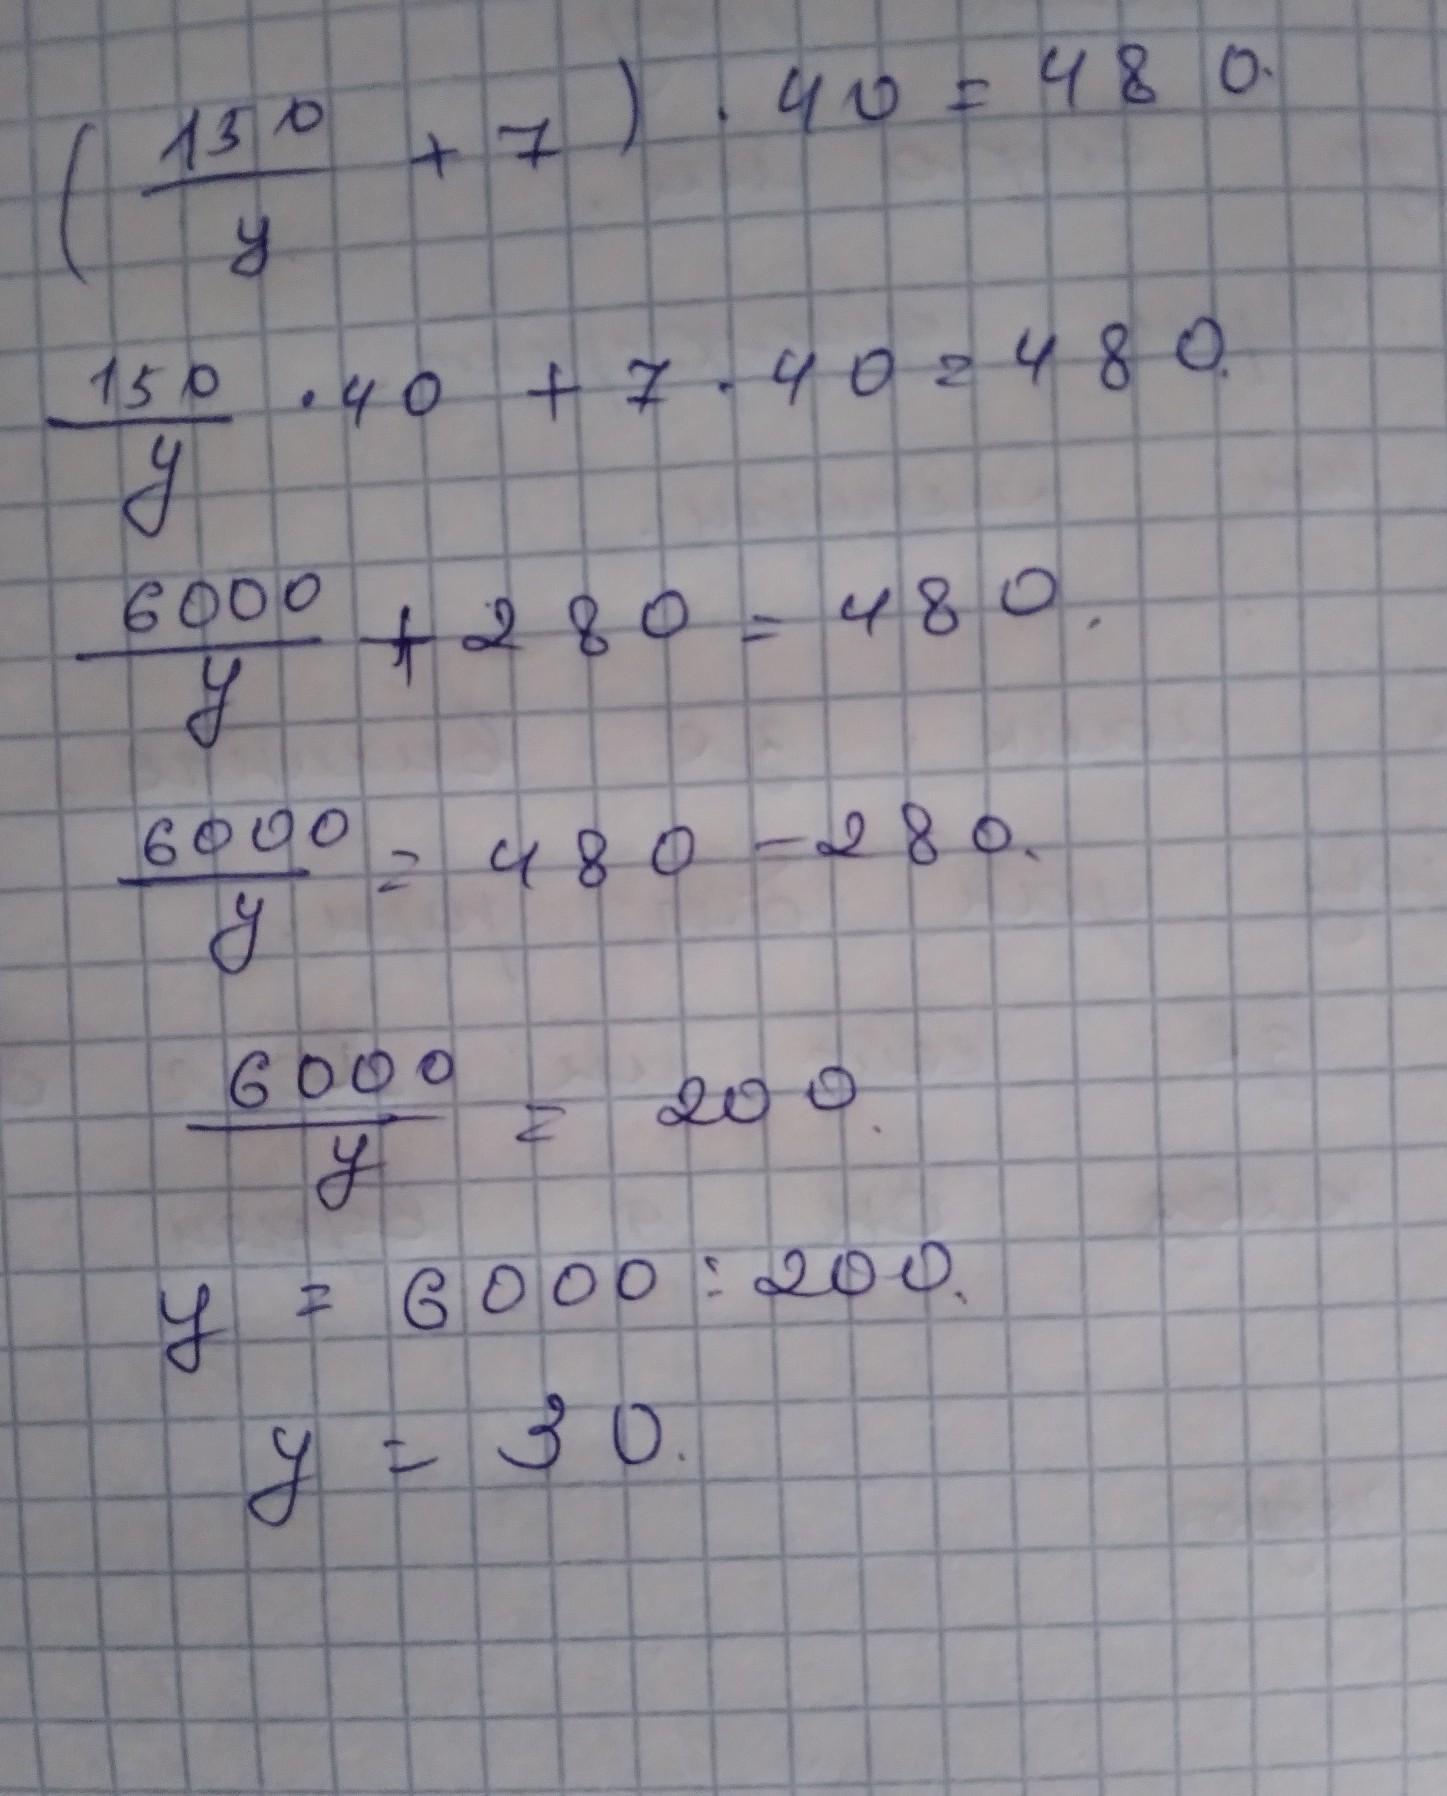 (150/y + 7) · 40 = 480.
150/y · 40 + 7 · 40 = 480.
6000/y + 280 = 480.
6000/y = 480 - 280.
6000/y = 200.
y = 6000 : 200.
y = 30.